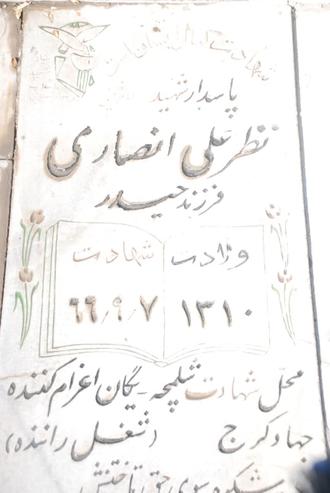 شهادت
پاسدار شهید
نظر علی انصاری
فرزند حیدر
ولادت شهادت
۱۳۱۰ ۶۶٫۹٫۷
محل شهادت شلمچه - یگان اعزام کننده
جهاد کرج (شغل راننده)
شکوه سوی حق تاختنش